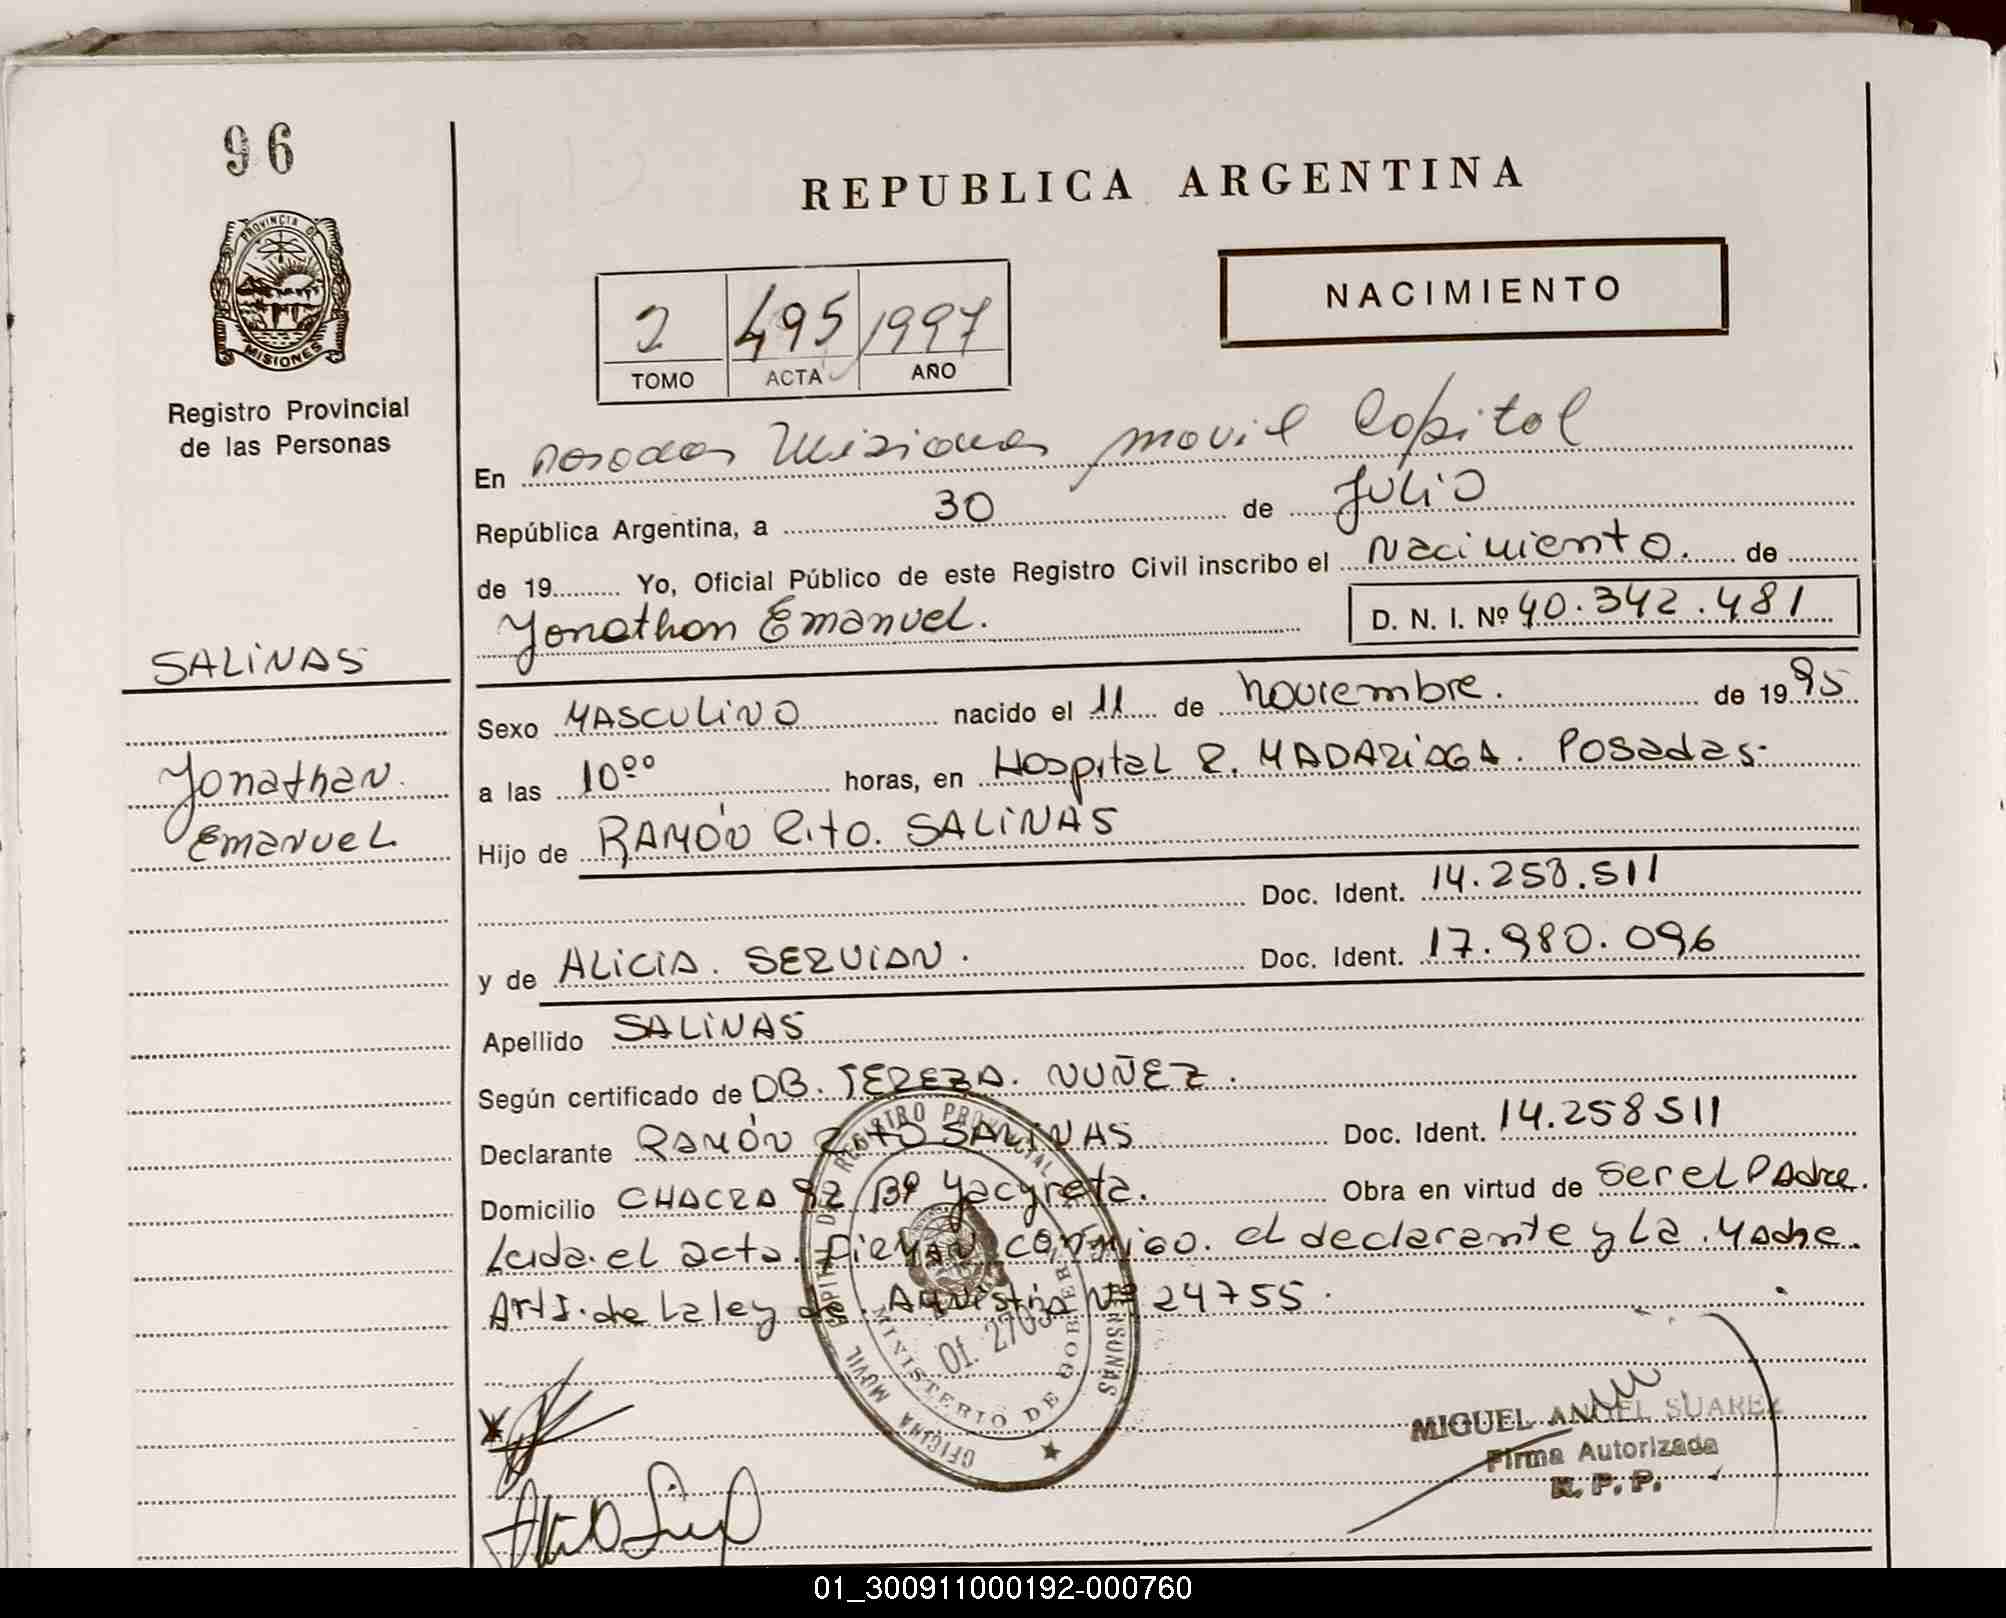 96
REPUBLICA ARGENTINA
PROVINCIA DE
MISIONES
Registro Provincial
de las Personas
2 495 1997
TOMO ACTA AÑO
NACIMIENTO
En Posadas Misiones movil Capital
República Argentina, a 30 de JULIO
de 19 Yo, Oficial Público de este Registro Civil inscribo el Nacimiento. de
Jonathan Emanuel.
D. N. I. Nº 40.342.481
SALINAS
Jonathan.
Emanuel
Sexo MASCULINO nacido el 11 de noviembre. de 1995
a las 10⁰⁰ horas, en Hospital R. MADARIAGA. Posadas.
Hijo de RAMÓN Rito. SALINAS
Doc. Ident. 14.258.511
y de ALICIA. SERVIAN. Doc. Ident. 17.980.096
Apellido SALINAS
Según certificado de DB. TEREZA. NUÑEZ.
Declarante RAMÓN Rito SALINAS Doc. Ident. 14.258511
Domicilio CHACRA 92 Bº Yacyreta. Obra en virtud de ser el Padre.
Leida. el acta. FIRMAN conmigo. el declarante y La. Madre.
Art 1. de La ley de. AMNistia Nº 24755.
OFICINA MOVIL CAPITAL DEL REGISTRO PROVINCIAL DE LAS PERSONAS
MINISTERIO DE GOBIERNO
Of. 2703
MIGUEL ANGEL SUAREZ
Firma Autorizada
R. P. P.
01_300911000192-000760